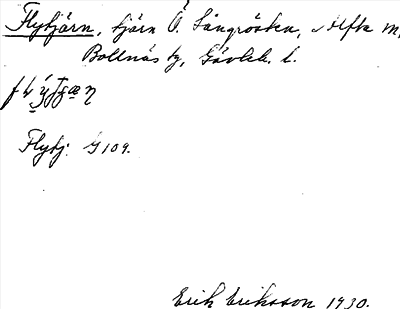 Flytjärn, tjärn Ö. Långrösten, Alfta
Bollnäs tg, Gävleb. l.
Flytj. G 109.
Erik Eriksson 1930.